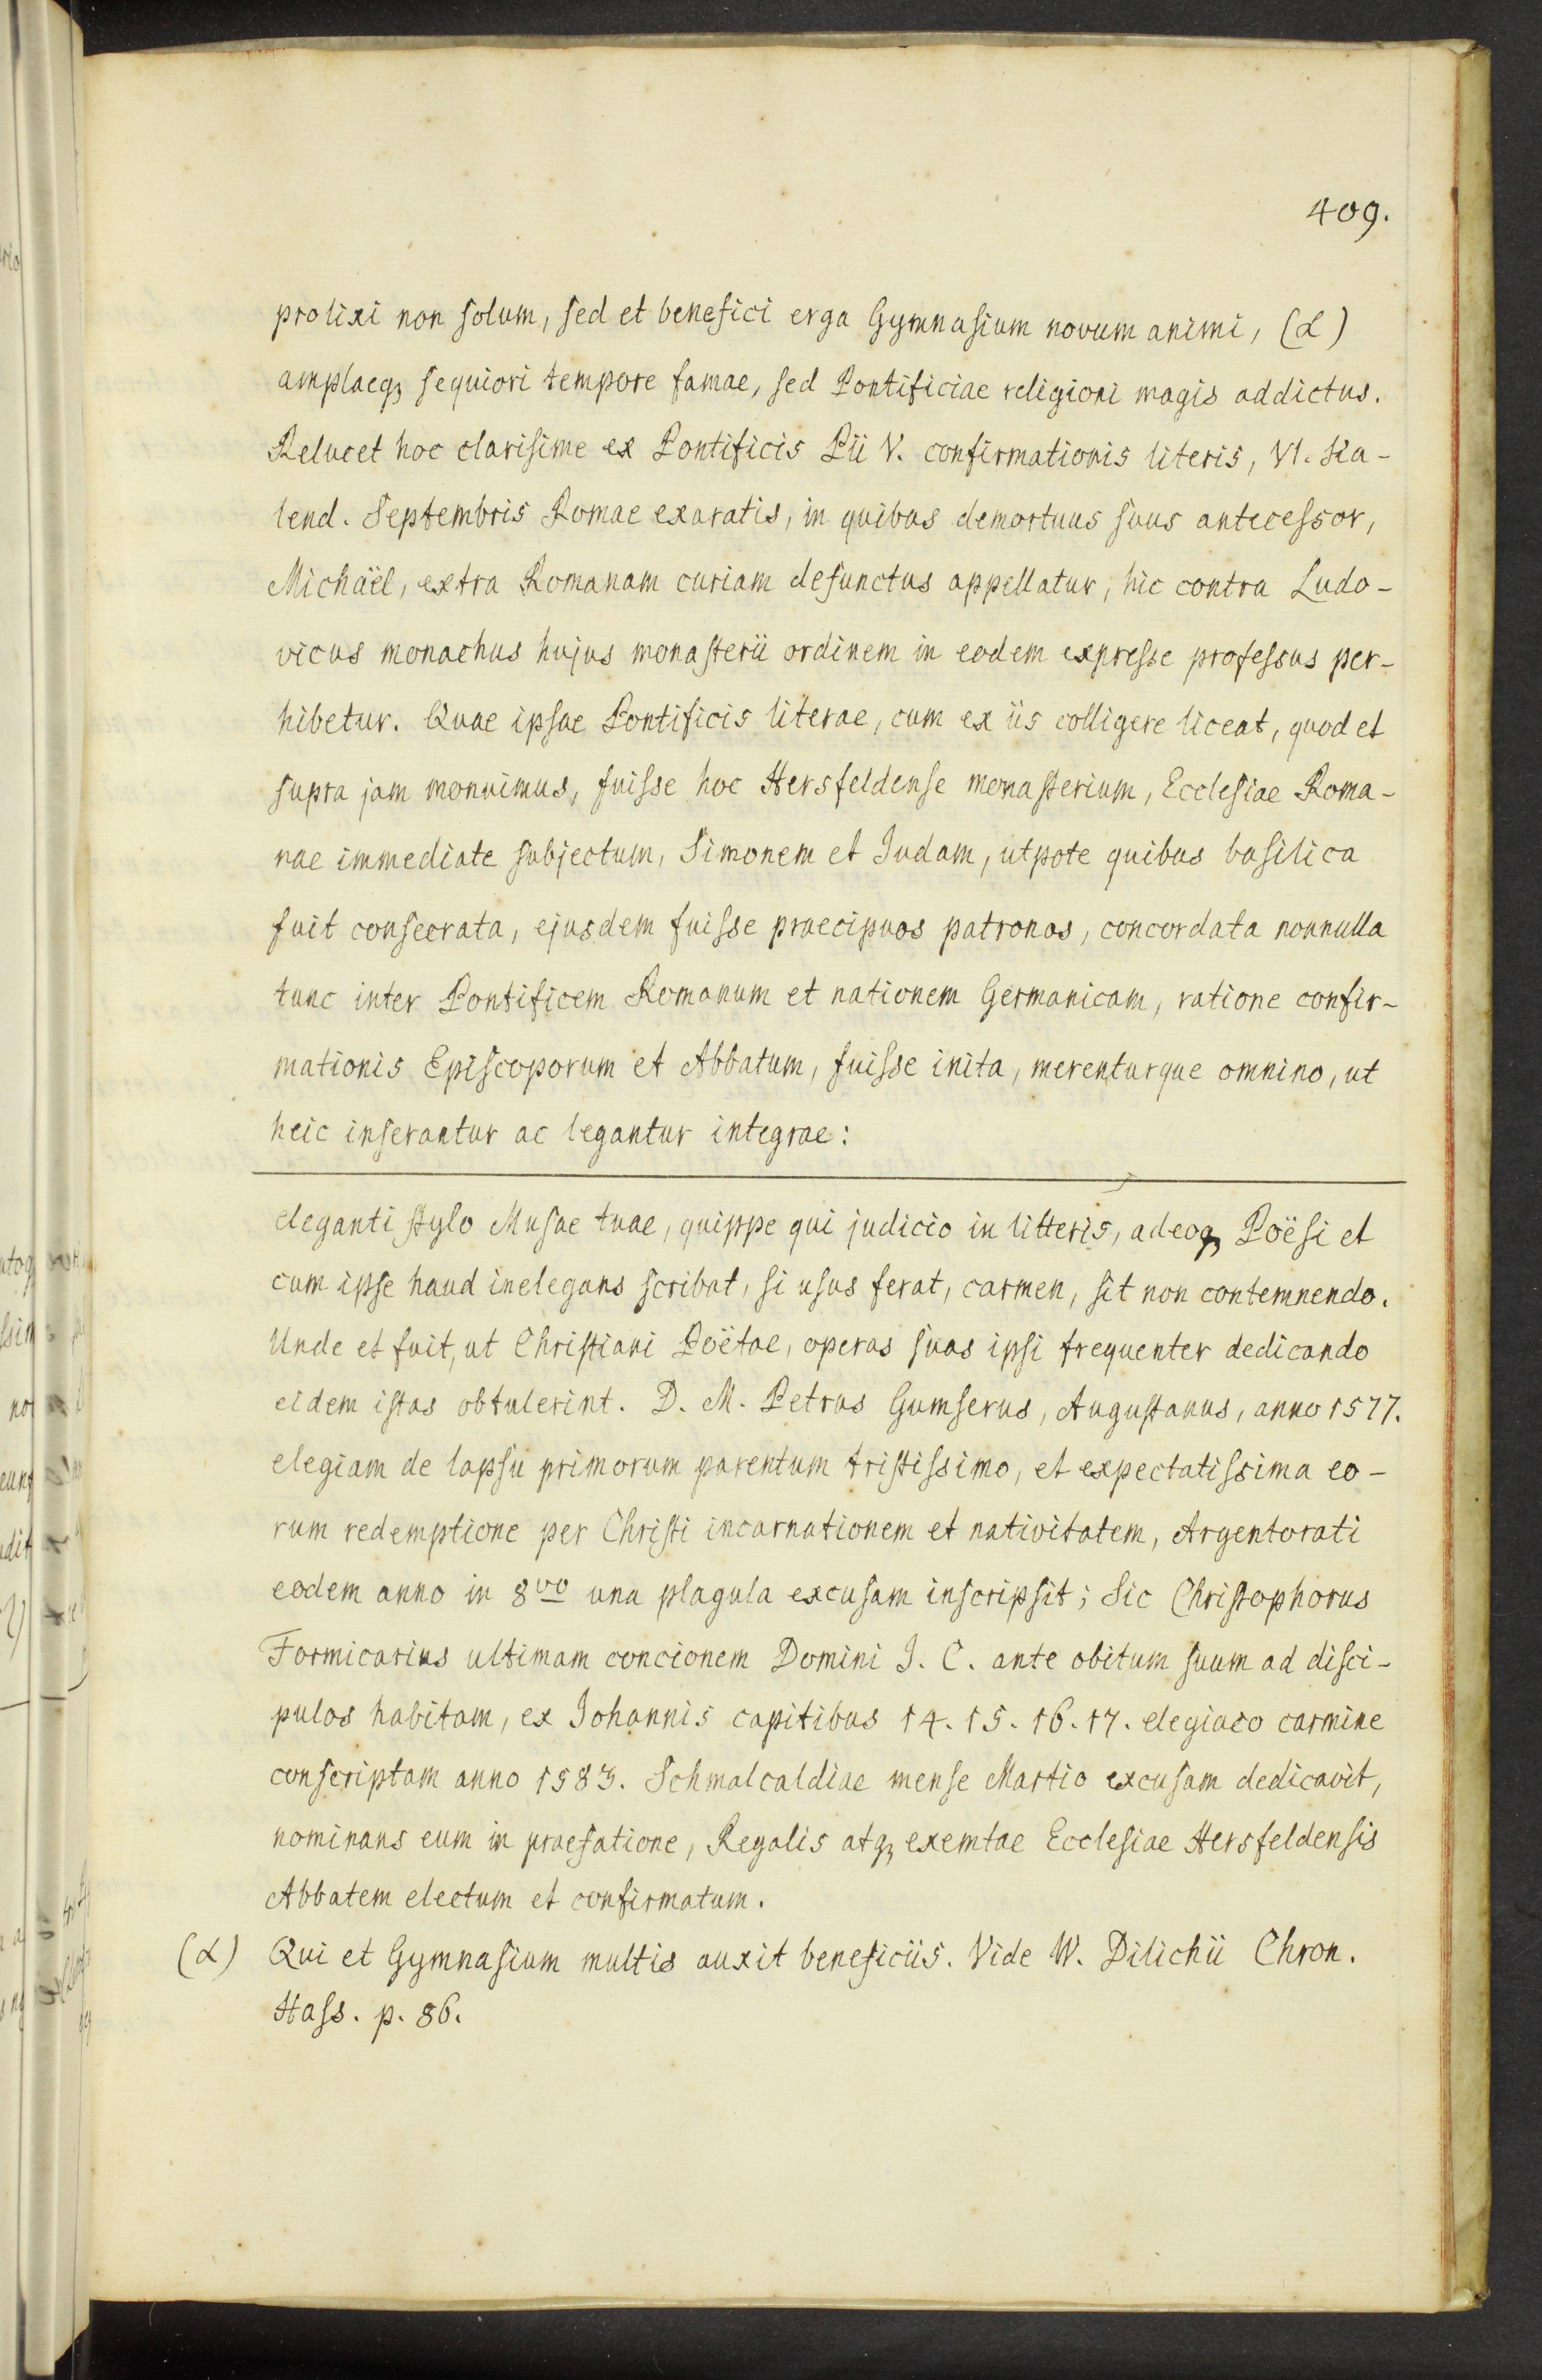 409.
prolixi non solum, sed et benefici erga Gymnasium novum animi, (α)
amplaeq; sequiori tempore famae, sed Pontificiae religioni magis addictus.
Relucet hoc clarisime ex Pontificis Pii V. confirmationis literis, VI. Ka-
lend. Septembris Romae exaratis, in quibus demortuus suus antecessor,
Michaël, extra Romanam curiam defunctus appellatur, hic contra Ludo-
vicus monachus hujus monasterii ordinem in eodem expresse professus per-
hibetur. Quae ipsae Pontificis literae, cum ex iis colligere liceat, quod et
supra jam monuimus, fuisse hoc Hersfeldense monasterium, Ecclesiae Roma-
nae immediate subjectum, Simonem et Judam, utpote quibus basilica
fuit consecrata, ejusdem fuisse praecipuos patronos, concordata nonnulla
tunc inter Pontificem Romanum et nationem Germanicam, ratione confir-
mationis Episcoporum et Abbatum, fuisse inita, merenturque omnino, ut
heic inserantur ac legantur integrae:
eleganti stylo Musae tuae, quippe qui judicio in litteris, adeoq; Poësi et
cum ipse haud inelegans scribat, si usus ferat, carmen, sit non contemnendo.
Unde et fuit, ut Christiani Poëtae, operas suas ipsi frequenter dedicando
eidem istas obtulerint. D. M. Petrus Gumserus, Augustanus, anno 1577.
elegiam de lapsu primorum parentum tristissimo, et expectatissima eo-
rum redemptione per Christi incarnationem et nativitatem, Argentorati
eodem anno in 8vo una plagula excusam inscripsit; Sic Christophorus
Formicarius ultimam concionem Domini J. C. ante obitum suum ad disci-
pulos habitam, ex Johannis capitibus 14. 15. 16. 17. elegiaco carmine
conscriptam anno 1583. Schmalcaldiae mense Martio excusam dedicavit,
nominans eum in praefatione, Regalis atq; exemtae Ecclesiae Hersfeldensis
Abbatem electum et confirmatum.
(α) Qui et Gymnasium multis auxit beneficiis. Vide W. Dilichii Chron.
Hass. p. 86.